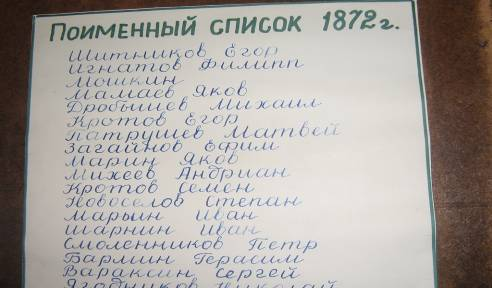 Поименный список 1872 г.
Шитников Егор
Игнатов Филипп
Мошкин
Мамаев Яков
Дробышев Михаил
Кротов Егор
Патрушев Матвей
Загайнов Ефим
Марин Яков
Михеев Андриан
Кротов Семен
Новоселов Степан
Марьин Иван
Шарнин Иван
Смоленников Петр
Бармин Герасим
Вараксин Сергей
Ягодников Николай